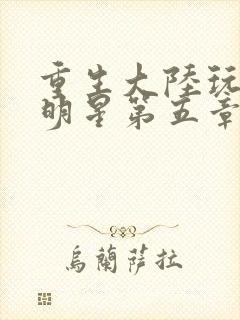 重生大陸玩
明星第五章
烏蘭薩拉